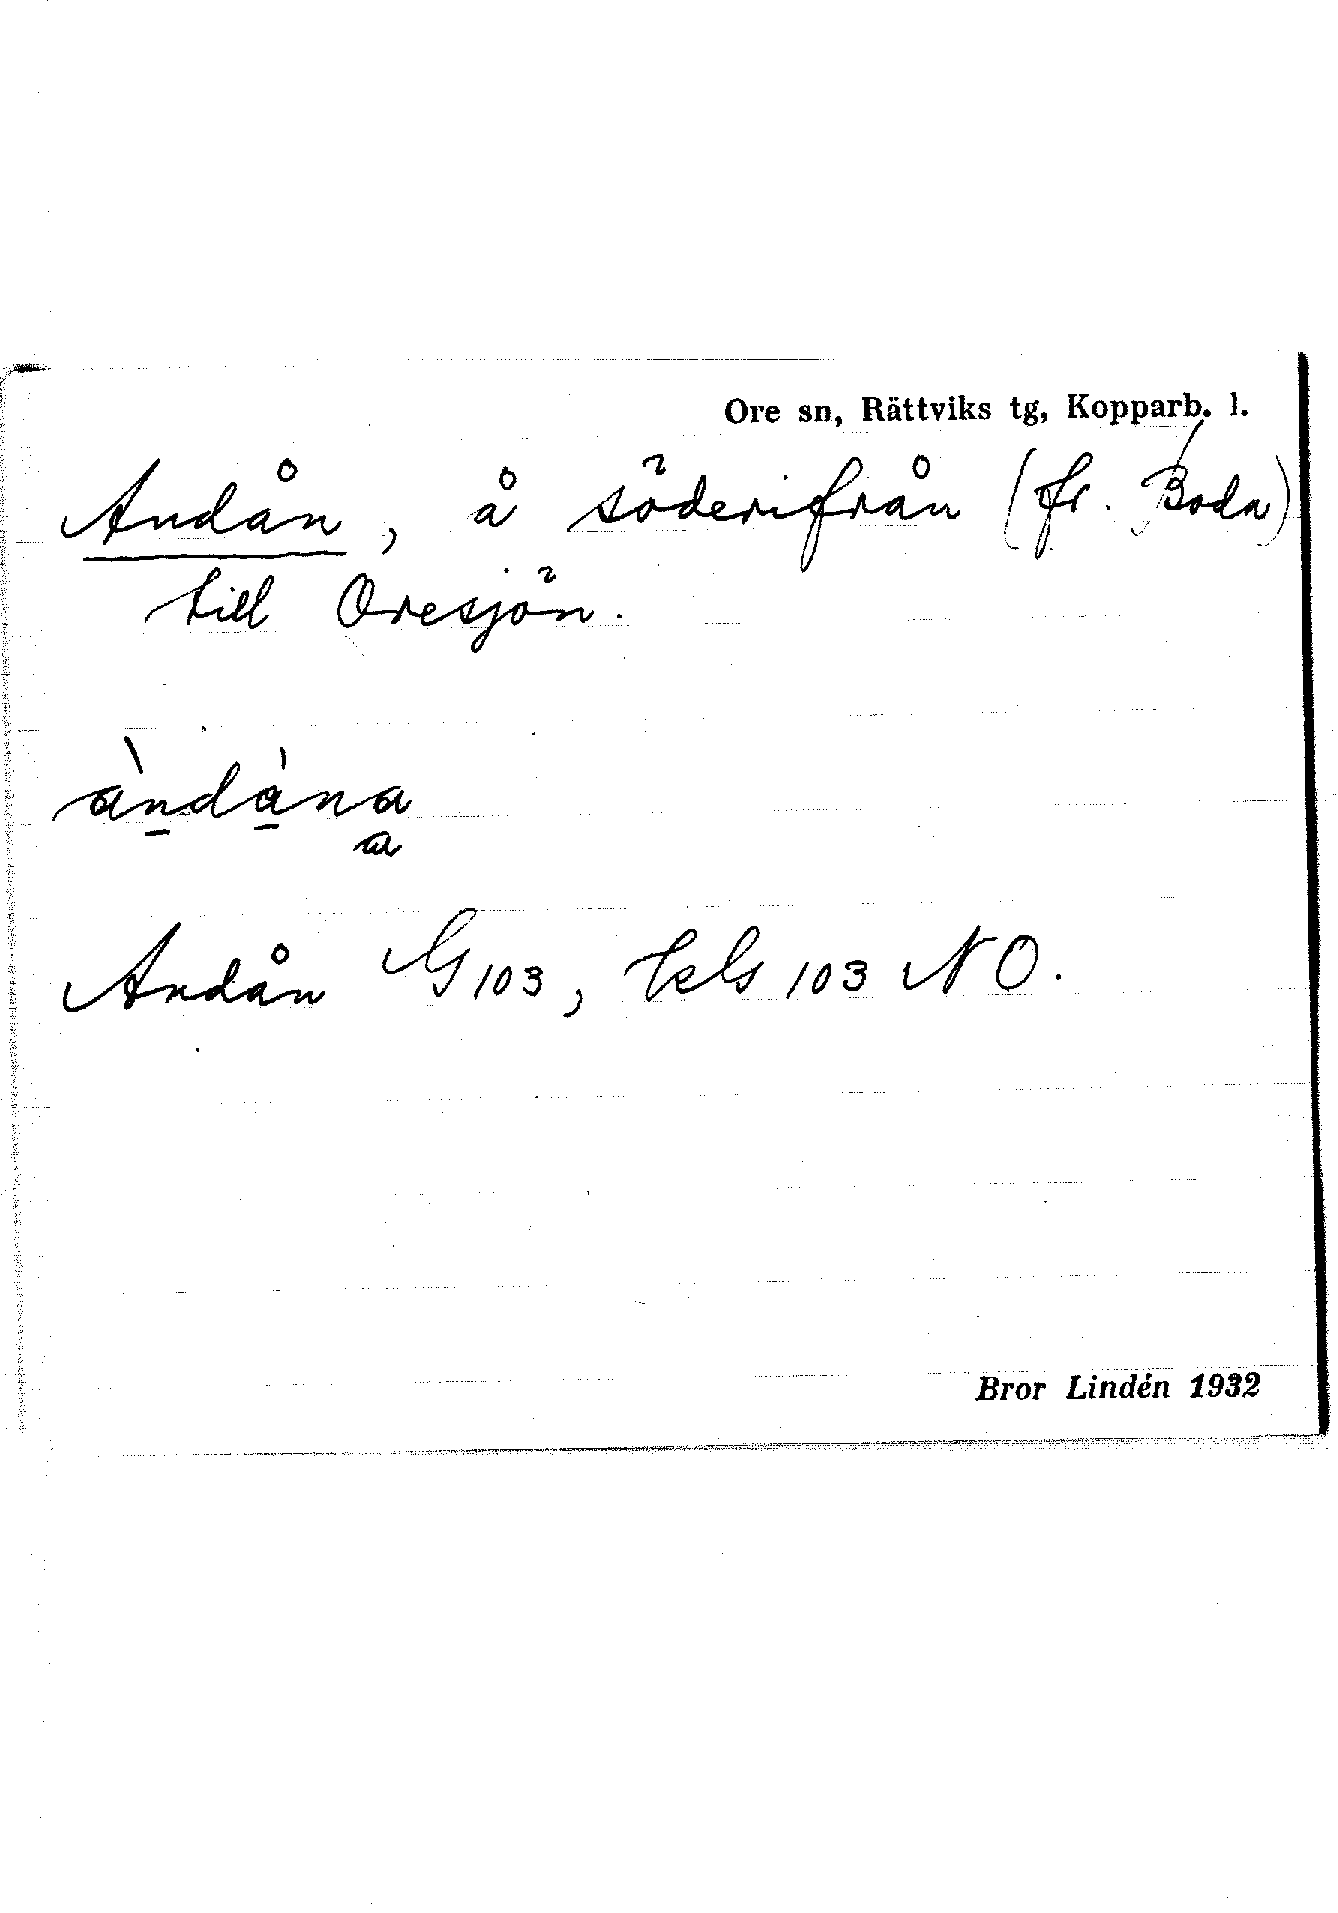 Ore sn, Rättviks tg, Kopparb. l.
Andån, å söderifrån (fr. Boda)
till Oresjön.
àndána
a
Andån G 103, 103 NO.
Bror Lindén 1932